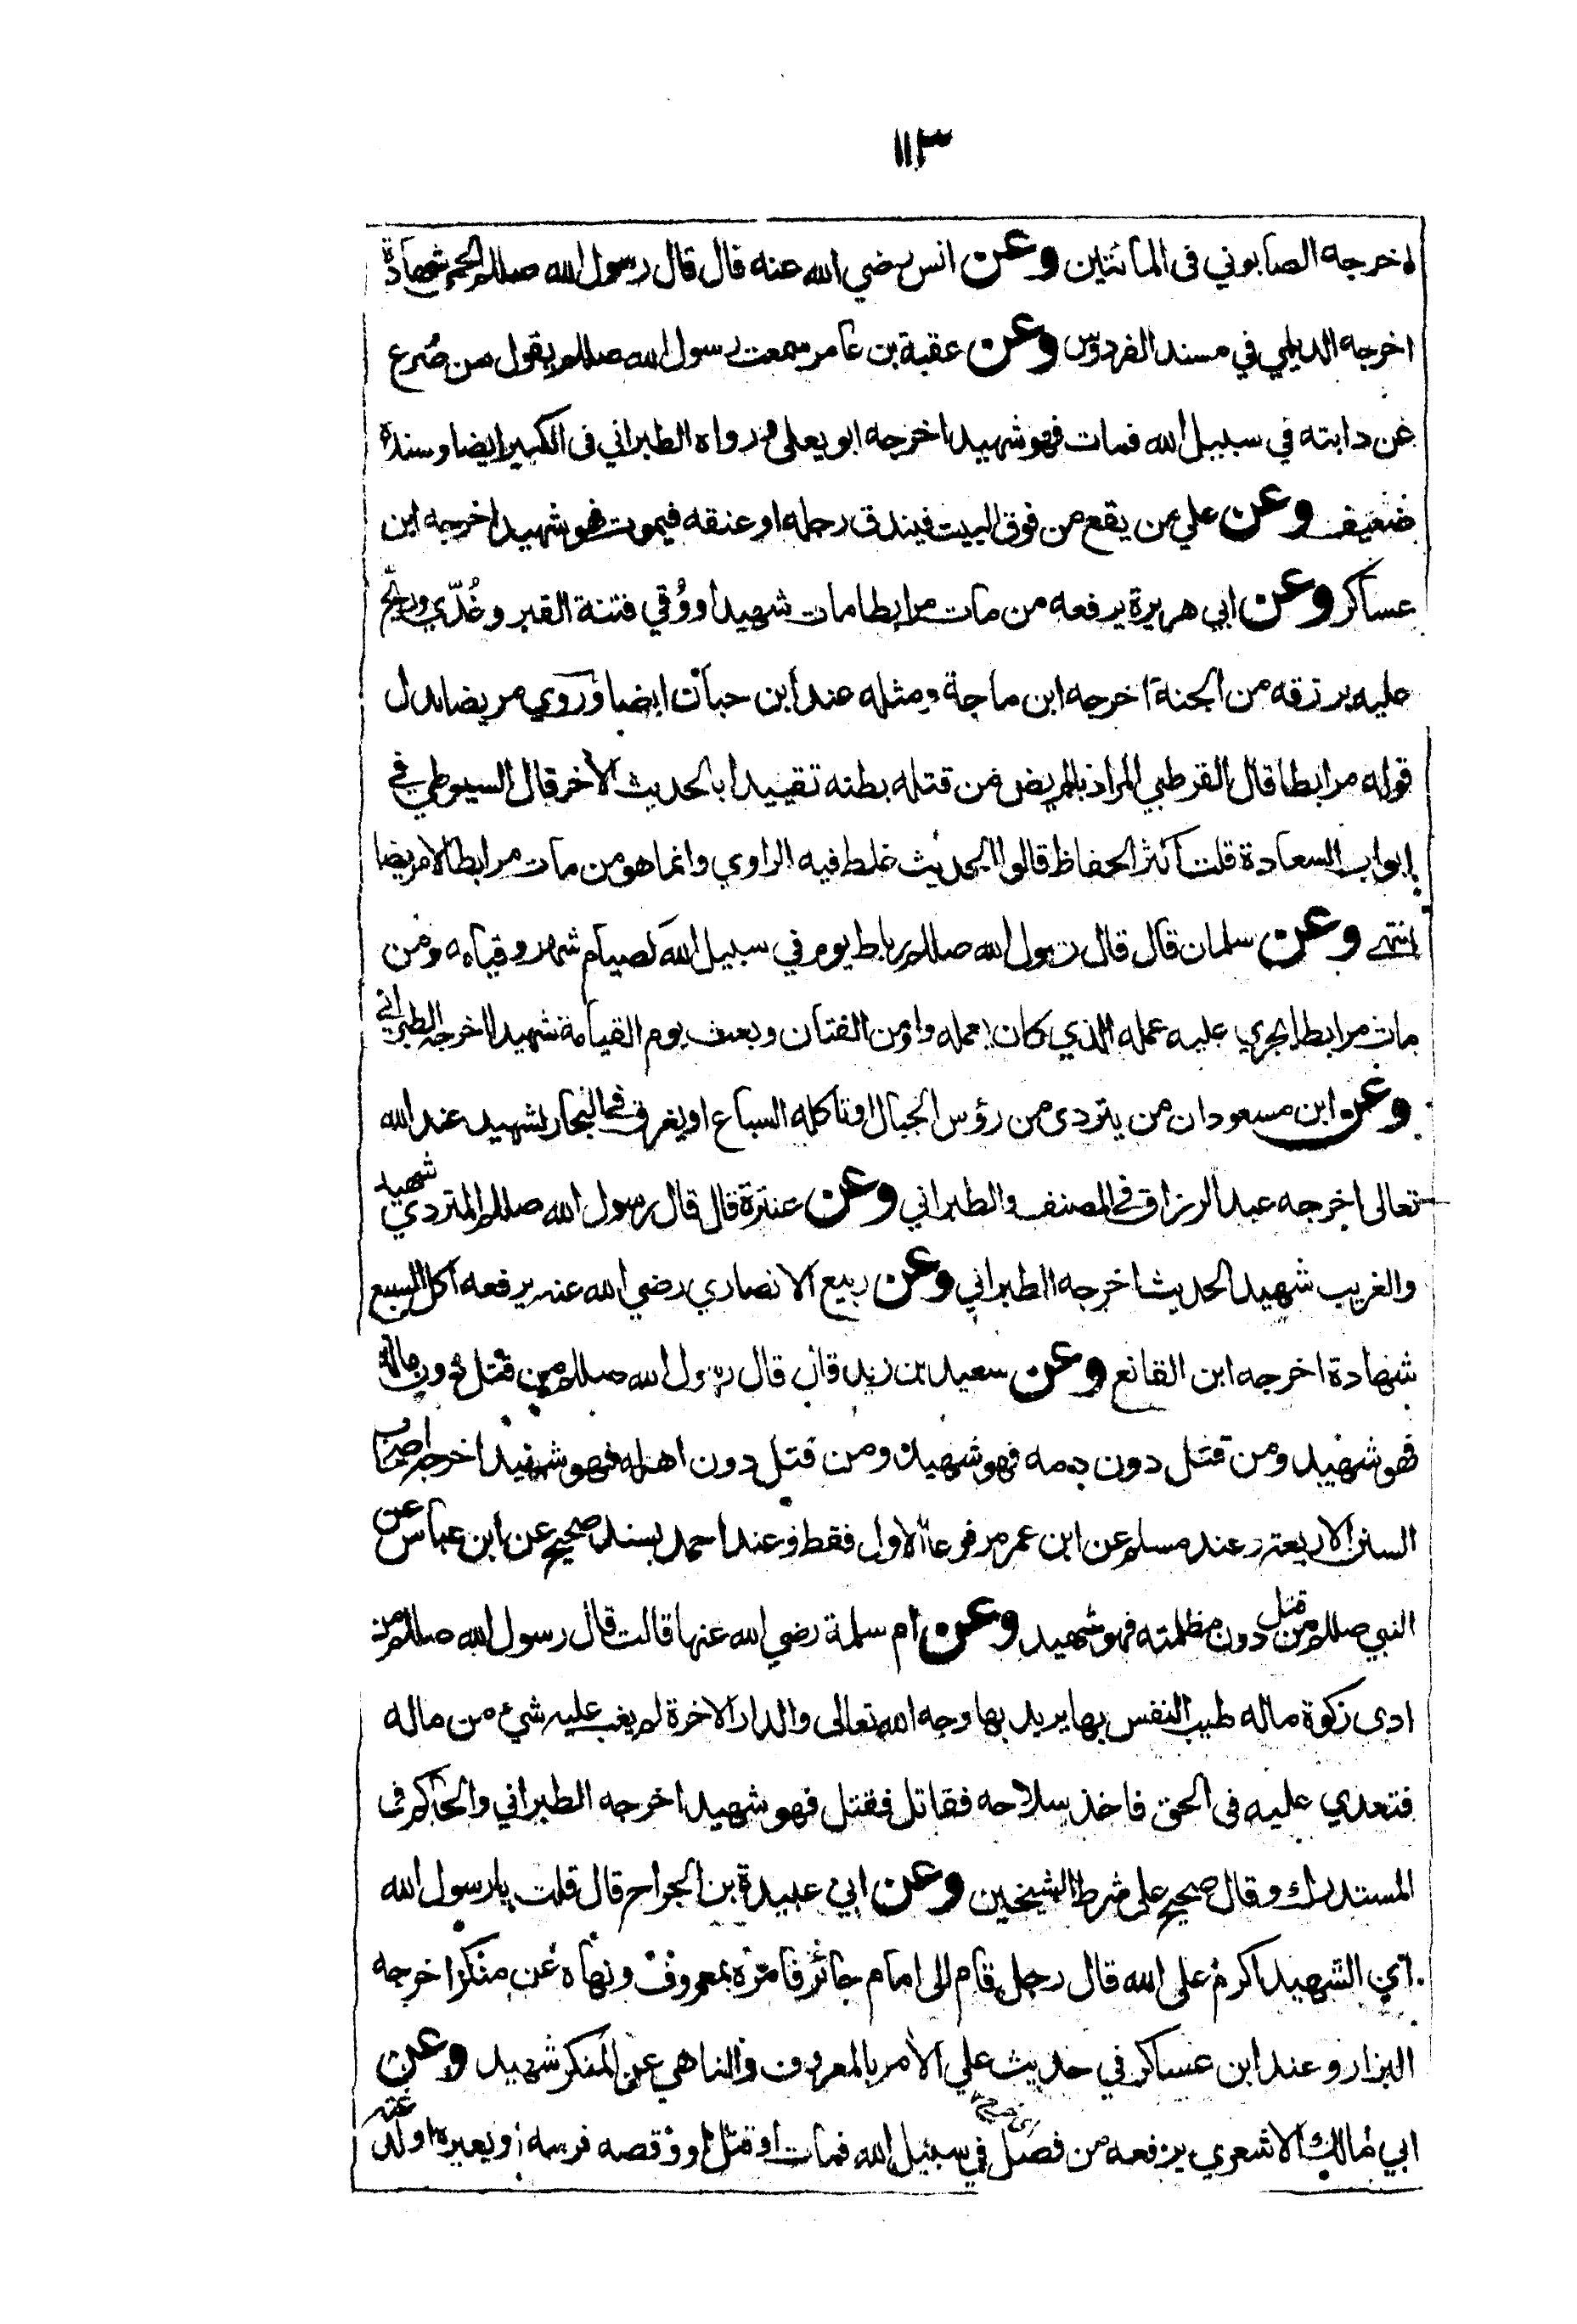 ١١٣
اخرجه الصابوني فى المائتين وعن انس رضي الله عنه قال قال رسول الله صللم الحمى شهادة
اخرجه الديلمي في مسند الفردوس وعن عقبة بن عامر سمعت رسول الله صللم يقول من صُرع
عن دابته في سبيل الله فمات فهو شهيد اخرجه ابو يعلى ورواه الطبراني فى الكبير ايضا وسنده
ضعيف وعن علي من يقع من فوق البيت فيندق رجله او عنقه فيموت فهو شهيد اخرجه ابن
عساكر وعن ابي هريرة يرفعه من مات مرابطا مات شهيدا ووُقي فتنة القبر وغُدّي وريح
عليه برزقه من الجنة اخرجه ابن ماجة ومثله عند ابن حبان ايضا وروي مريضا بدل
قوله مرابطا قال القرطبي المراد بالمريض من قتله بطنه تقييدا بالحديث الأخر قال السيوطي في
ابواب السعادة قلت اكثر الحفاظ قالوا الحديث غلط فيه الراوي وانما هو من مات مرابطا لا مريضا
انتهى وعن سلمان قال قال رسول الله صللم رباط يوم في سبيل الله كصيام شهر وقيامه ومن
مات مرابطا جري عليه عمله الذي كان يعمله واؤمن الفتان وبعث يوم القيامة شهيدا اخرجه الطبراني
وعن ابن مسعود ان من يتردى من رؤس الجبال او تاكله السباع او يغرق في البحار لشهيد عند الله
تعالى اخرجه عبد الرزاق في المصنف والطبراني وعن عنترة قال قال رسول الله صللم المتردي شهيد
والغريب شهيد الحديث اخرجه الطبراني وعن ربيع الانصاري رضي الله عنه يرفعه اكل السبع
شهادة اخرجه ابن القانع وعن سعيد بن زيد قال قال رسول الله صللم من قتل دون ماله
فهو شهيد ومن قتل دون دمه فهو شهيد ومن قتل دون اهله فهو شهيد اخرجه اصحاب
السنن الاربعة وعند مسلم عن ابن عمر مرفوعا الاول فقط وعند احمد بسند صحيح عن ابن عباس عن
النبي صللم من قتل دون مظلمته فهو شهيد وعن ام سلمة رضي الله عنها قالت قال رسول الله صللم من
ادى زكوة ماله طيب النفس بها يريد بها وجه الله تعالى والدار الاخرة لم يغب عليه شيء من ماله
فتعدي عليه فى الحق فاخذ سلاحه فقاتل فقتل فهو شهيد اخرجه الطبراني والحاكم فى
المستدرك وقال صحيح على شرط الشيخين وعن ابي عبيدة بن الجراح قال قلت يا رسول الله
اي الشهيد اكرم على الله قال رجل قام الى امام جائر فامره بمعروف ونهاه عن منكر اخرجه
البزار وعند ابن عساكر في حديث علي الأمر بالمعروف والناهي عن المنكر شهيد وعن
ابي مالك الاشعري يرفعه من فصل في سبيل الله فمات او قتل او وقصه فرسه او بعيره او لدغته